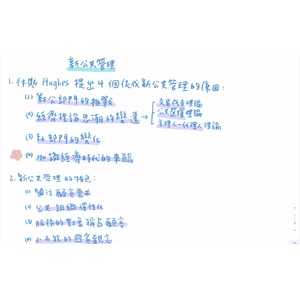 新公共管理
1. 休斯 Hughes 提出 4 個促成新公共管理的原因:
(1) 對公部門的抨擊
(2) 經濟理論思潮的變遷 → 交易成本理論
公共選擇理論
主理人-代理人理論
(3) 私部門的變化
(4) 知識經濟時代的來臨
2. 新公共管理的特色:
(1) 關注顧客需求
(2) 公共組織彈性化
(3) 服務的對象為顧客
(4) 小而能的國家觀念